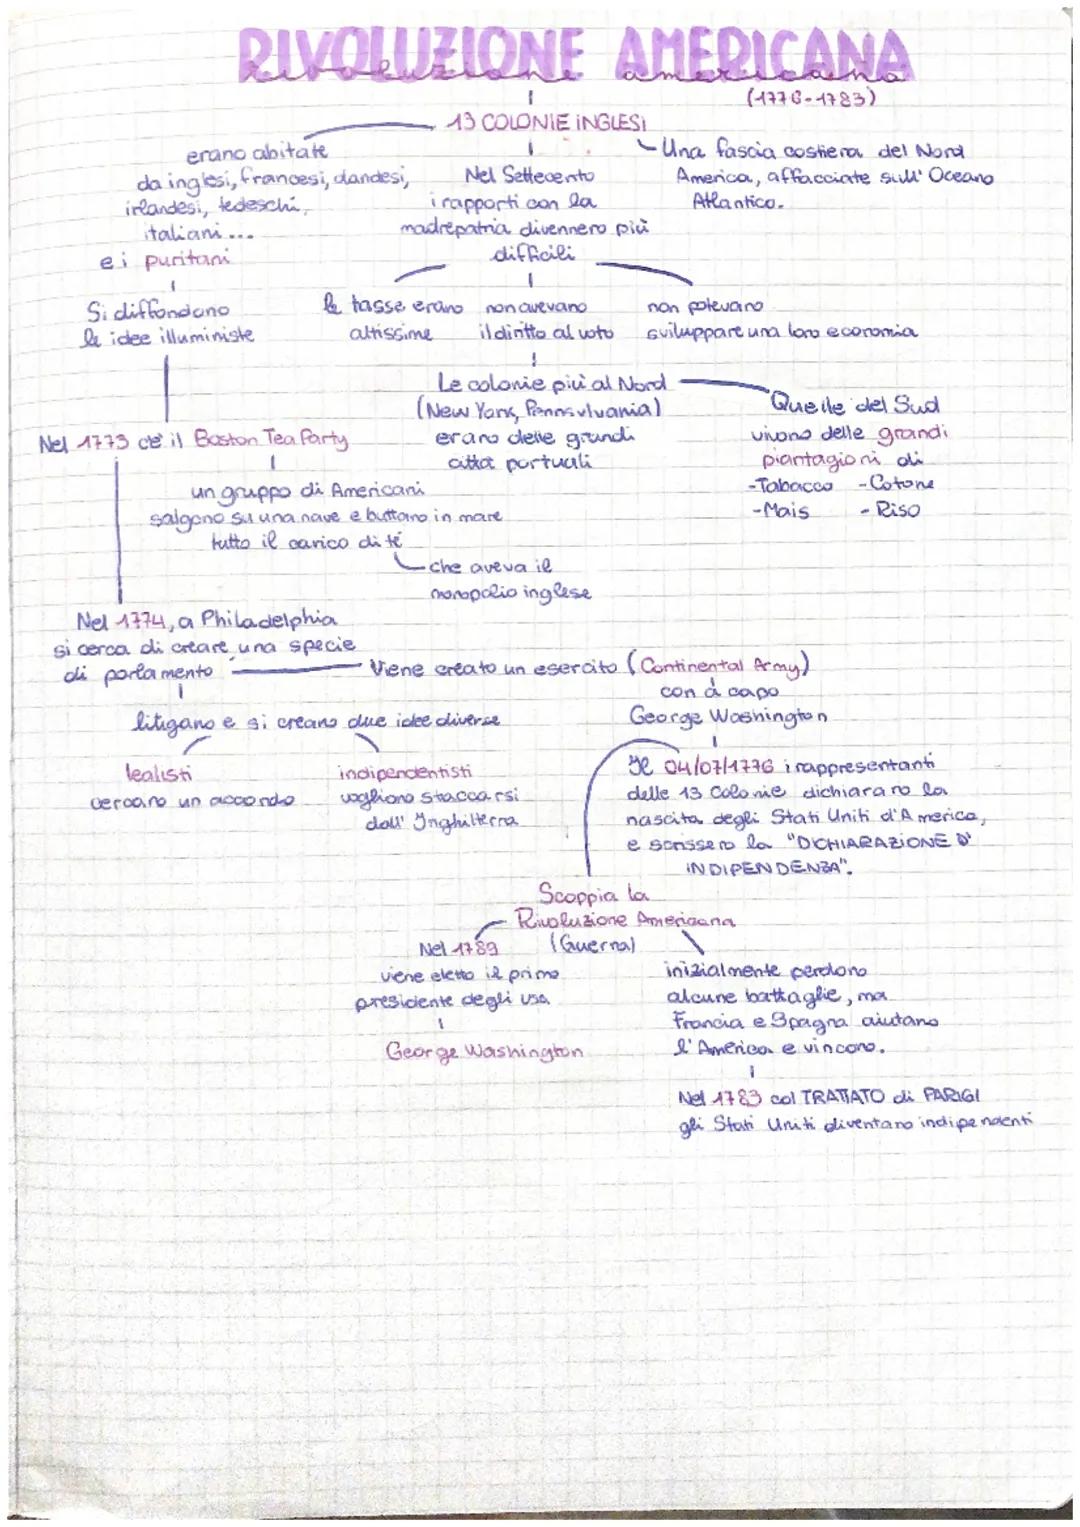 RIVOLUZIONE AMERICANA
Rivoluzione americana
(1776-1783)
13 COLONIE INGLESI
erano abitate
da inglesi, francesi, olandesi,
irlandesi, tedeschi,
italiani...
e i puritani
Si diffondono
le idee illuministe
Nel Settecento
i rapporti con la
madrepatria divennero più
difficili
Una fascia costiera del Nord
America, affacciate sull' Oceano
Atlantico.
le tasse erano
altissime
non avevano
il diritto al voto
non potevano
sviluppare una loro economia
Le colonie più al Nord
(New York, Pennsylvania)
erano delle grandi
città portuali
Quelle del Sud
vivono delle grandi
piantagioni di
-Tabacco -Cotone
-Mais -Riso
Nel 1773 c'è il Boston Tea Party
un gruppo di Americani
salgono su una nave e buttano in mare
tutto il carico di té
che aveva il
monopolio inglese
Nel 1774, a Philadelphia
si cerca di creare una specie
di parlamento
Viene creato un esercito (Continental Army)
con a capo
George Washington
litigano e si creano due idee diverse
lealisti
cercano un accordo
indipendentisti
vogliono staccarsi
dall' Inghilterra
Il 04/07/1776 i rappresentanti
delle 13 Colonie dichiararono la
nascita degli Stati Uniti d'America,
e scrissero la "DICHIARAZIONE D'
INDIPENDENZA".
Scoppia la
Rivoluzione Americana
(Guerra)
Nel 1789
viene eletto il primo
presidente degli USA
George Washington
inizialmente perdono
alcune battaglie, ma
Francia e Spagna aiutano
l'America e vincono.
Nel 1783 col TRATTATO di PARIGI
gli Stati Uniti diventano indipendenti